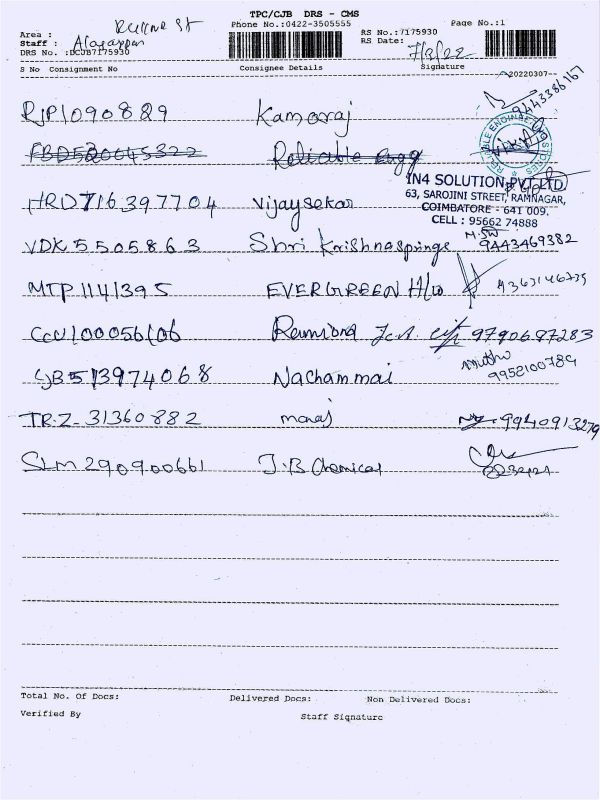 TPC/CJB DRS - CMS
Phone No.:0422-3505555 Page No.:1
Area :
Staff : Alagappan
DRS No. :DCJB7175930
RS No.:7175930
RS Date: 7/3/22
S No Consignment No Consignee Details Signature
20220307
RJP1090829 Kamaraj 9443386167
FBD520045322 Reliable Engg
RELIABLE ENGINEE
IN4 SOLUTION PVT LTD
63, SAROJINI STREET, RAMNAGAR,
COIMBATORE - 641 009.
CELL : 95662 74888
HRD716397704 Vijaysekar
VDK5505863 Shri Krishnasprings 9443469382
MTP1141395 EVERGREEN H/w
CCU100056106 9790697283
SJB513974068 Nachammai Muthu
9952100789
TRZ-31360882 manoj 9940913279
SLM290900661 J.B Chemical
Total No. Of Docs: Delivered Docs: Non Delivered Docs:
Verified By Staff Signature